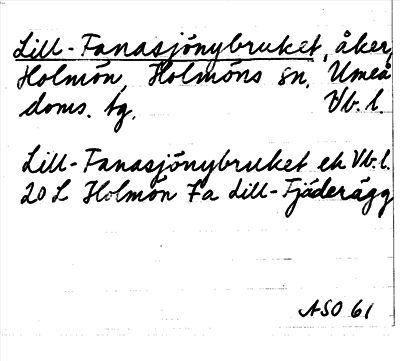 Lill-Fanasjönybruket, åker,
Holmön, Holmöns sn, Umeå
doms. tg. Vb. l.
Lill-Fanasjönybruket ek Vb. l.
20 L Holmön 7a Lill-Fjäderägg
ASO 61